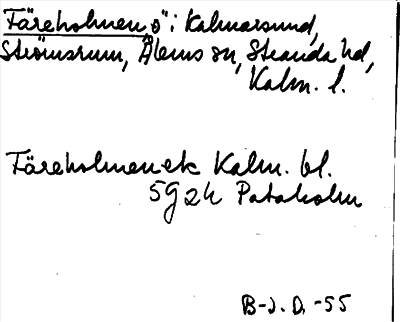 Färeholmen ö i Kalmarsund,
Strömsrum, Ålems sn, Stranda hd,
Kalm. l.
Färeholmen ek Kalm. bl.
5G2h Pataholm
B-J. D. -55